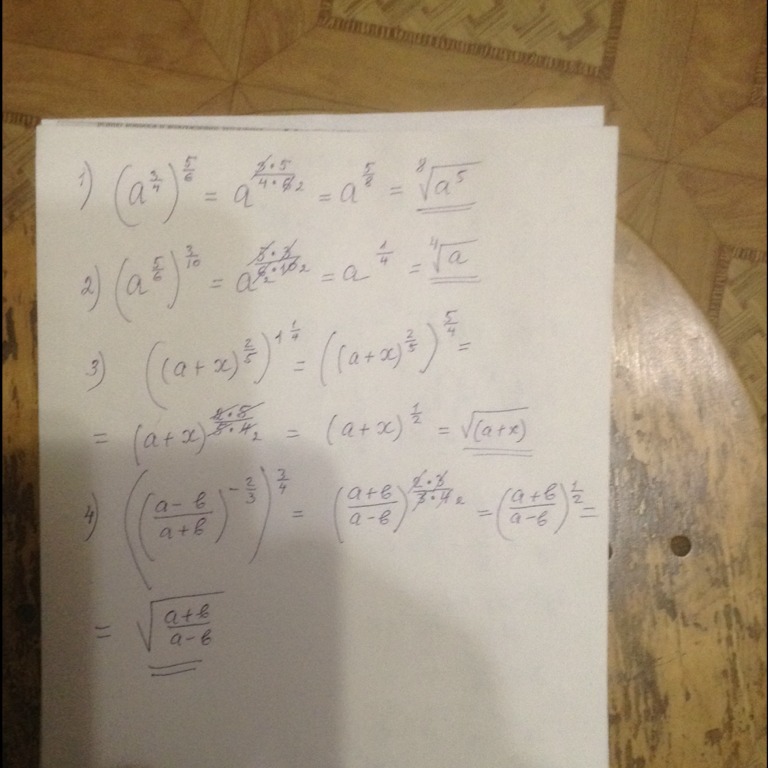 1) (a^{3/4})^{5/6} = a^{\frac{3·5}{4·6 2}} = a^{5/8} = \sqrt[8]{a^5}
2) (a^{5/6})^{3/10} = a^{\frac{5·3}{6 2·10 2}} = a^{1/4} = \sqrt[4]{a}
3) ((a+x)^{2/5})^{1 1/4} = ((a+x)^{2/5})^{5/4} =
= (a+x)^{\frac{2·5}{5·4 2}} = (a+x)^{1/2} = \sqrt{(a+x)}
4) ((\frac{a-в}{a+в})^{-2/3})^{3/4} = (\frac{a+в}{a-в})^{\frac{2·3}{3·4 2}} = (\frac{a+в}{a-в})^{1/2} =
= \sqrt{\frac{a+в}{a-в}}